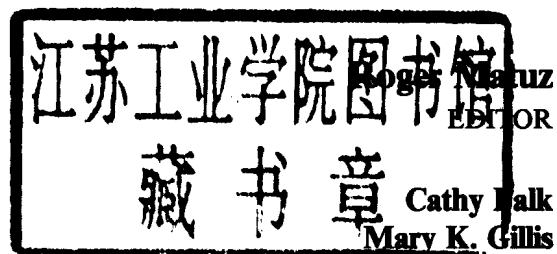 江苏工业学院图书馆
Roger Matuz
EDITOR
藏书章
Cathy Falk
Mary K. Gillis